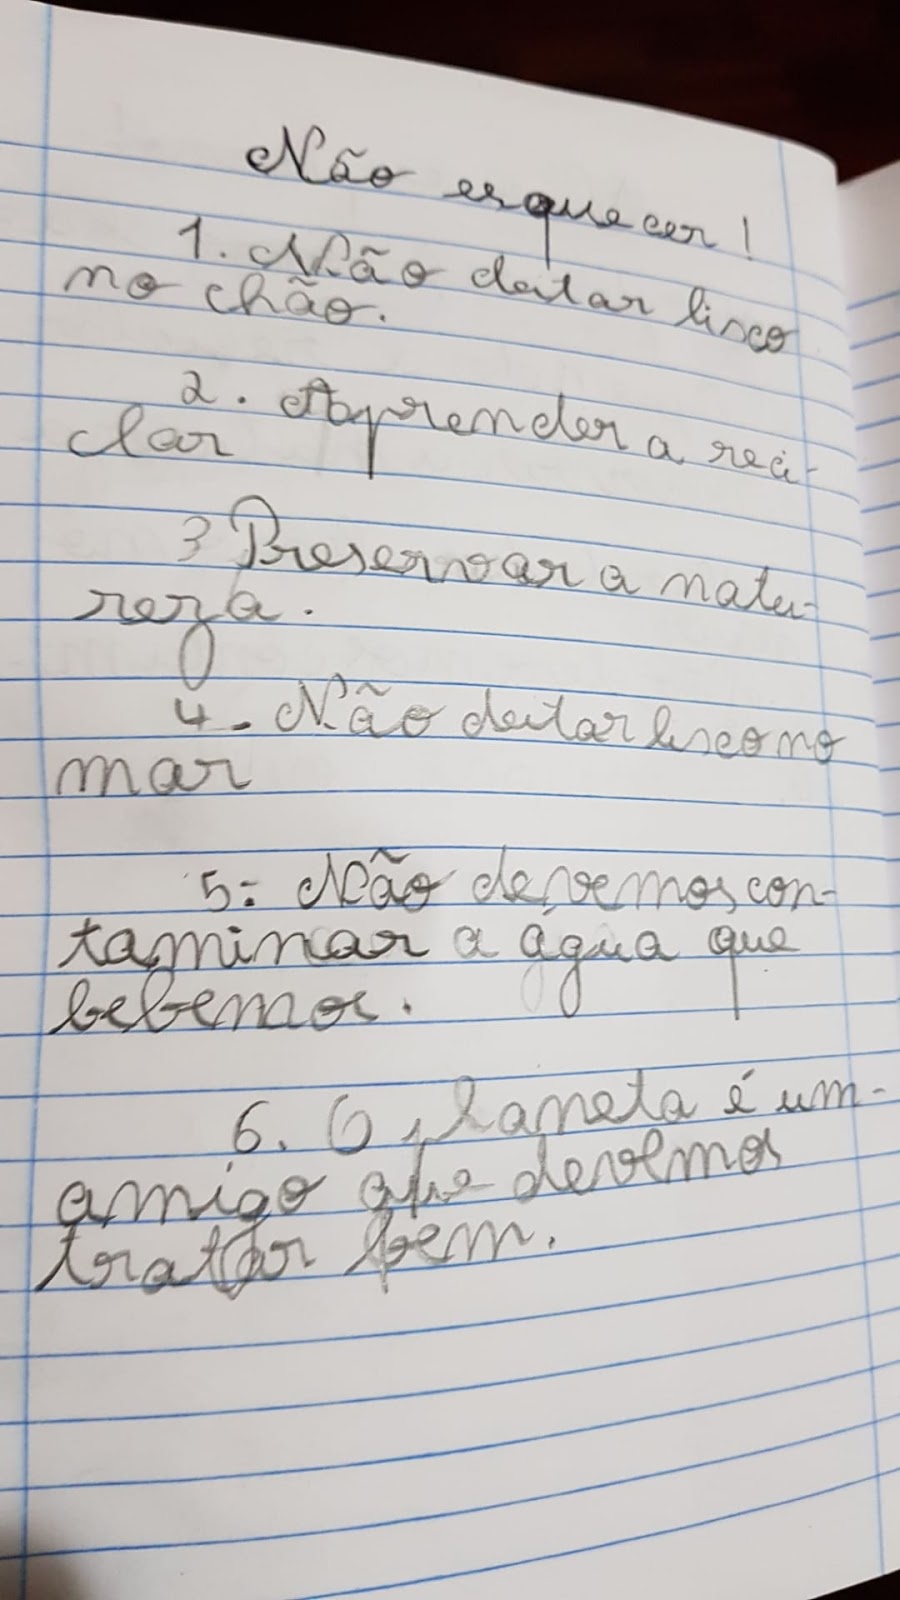 Não esquecer!
1. Não deitar lisco
no chão.
2. Aprender a reci-
clar
3 Preservar a natu-
reza.
4. Não deitar lisco no
mar
5. Não devemos con-
taminar a água que
bebemos.
6. O planeta é um
amigo que devemos
tratar bem.